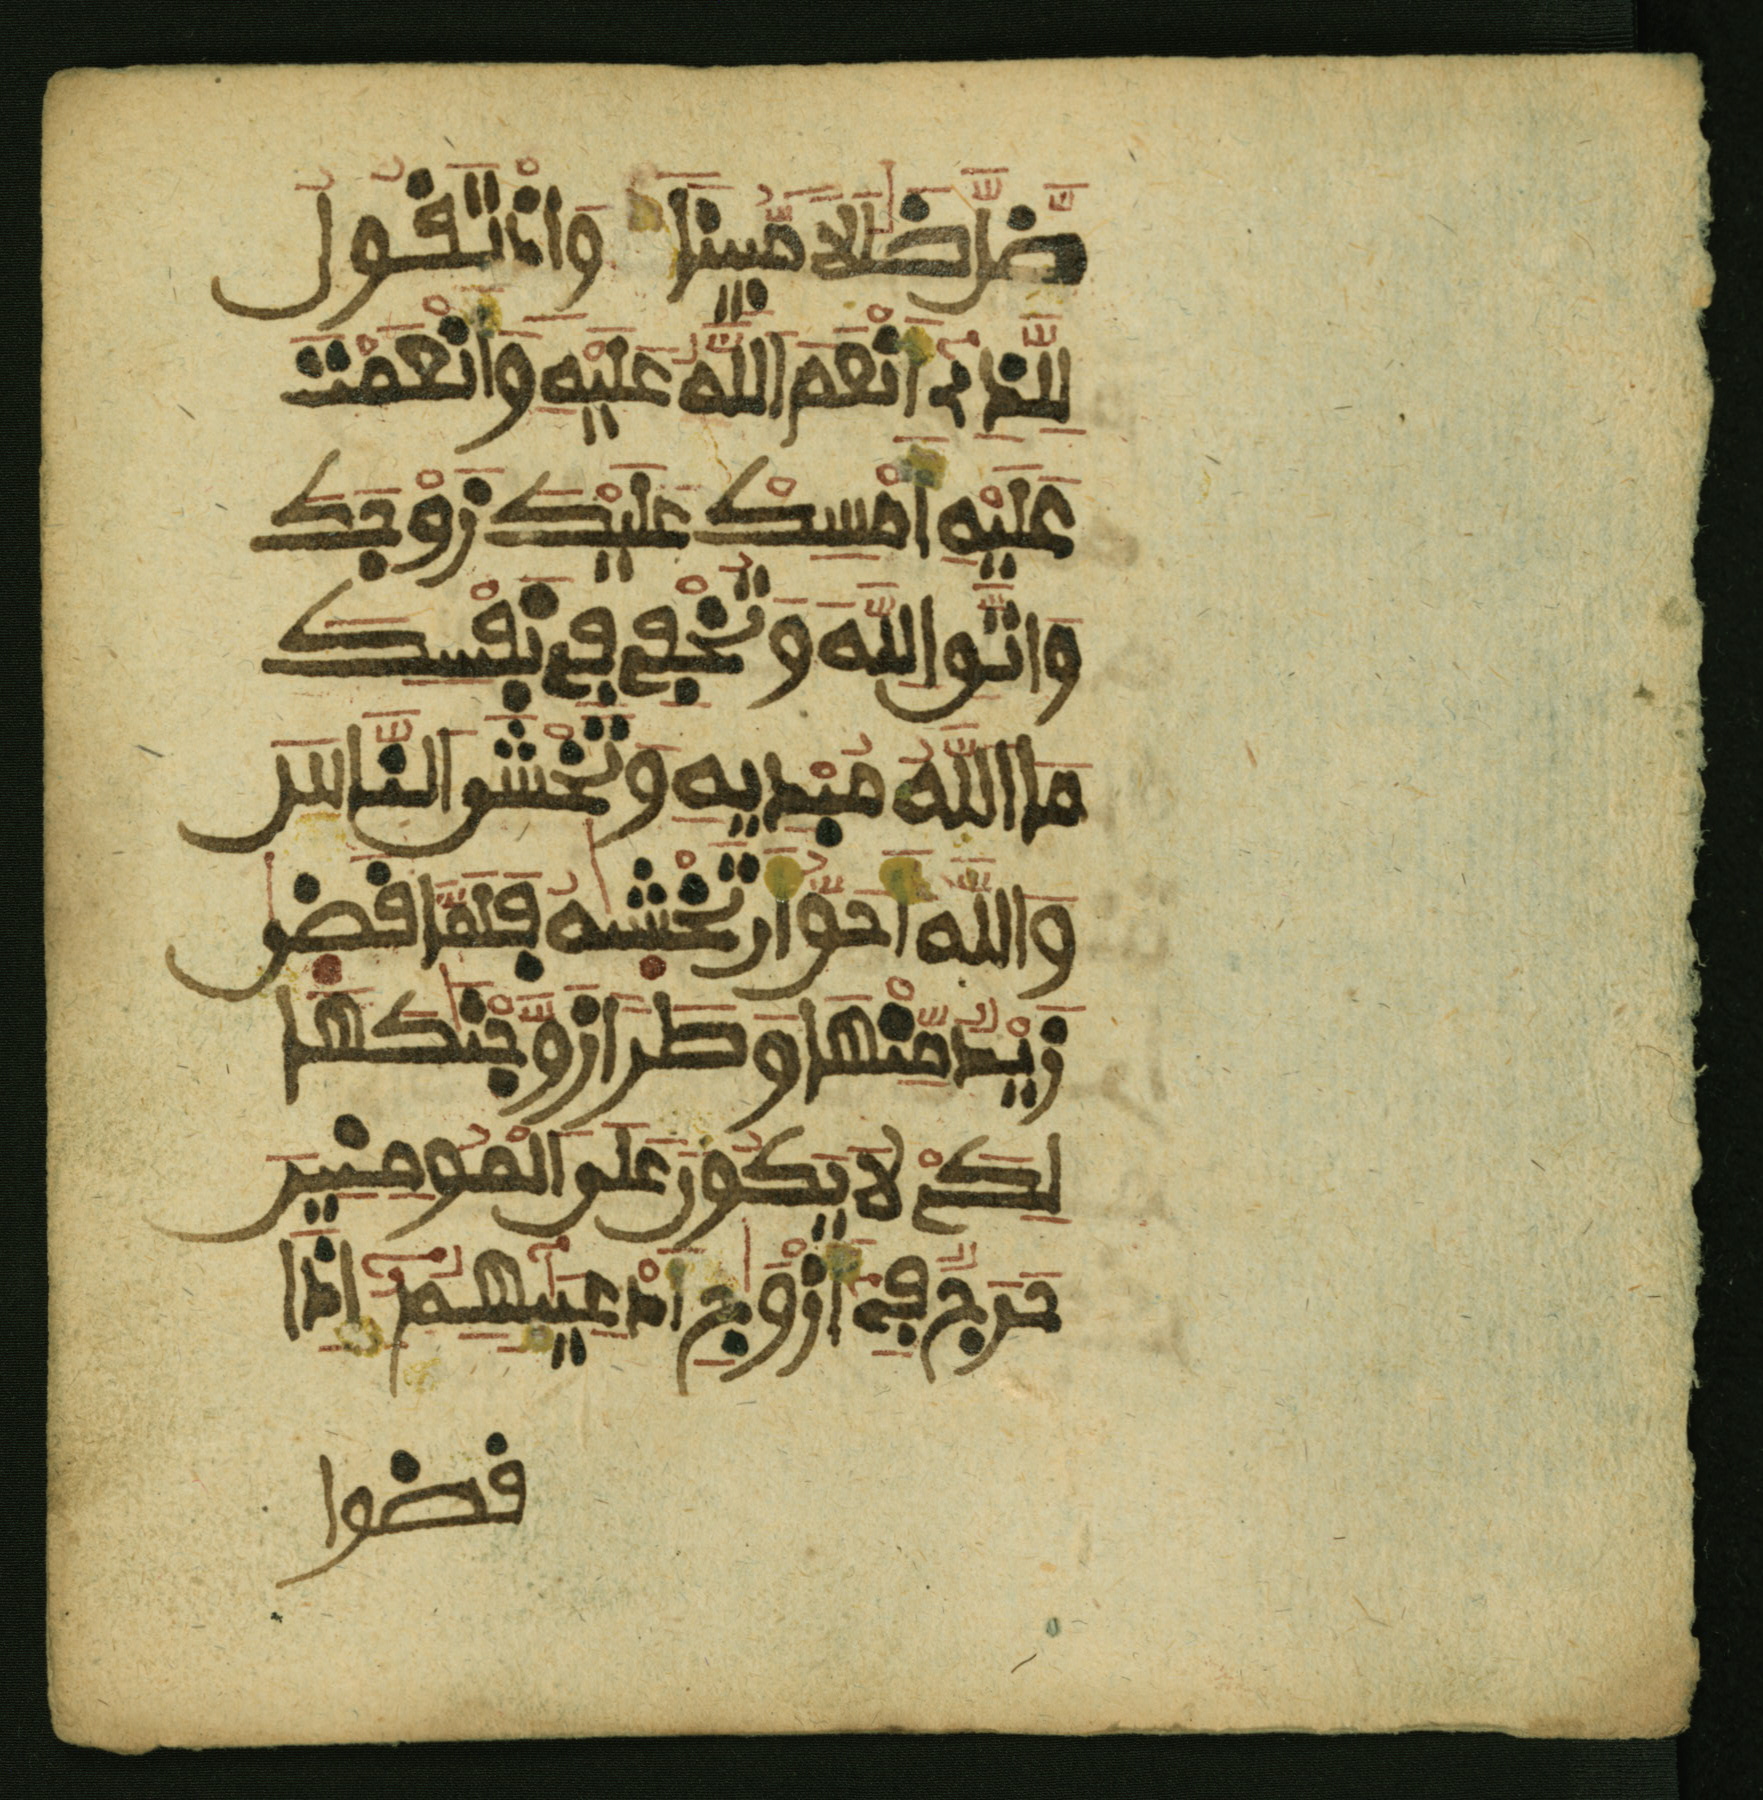 ضَّلَّ ضَلَٰلًا مُّبِينًا وَإِذْ تَقُولُ
لِلَّذِي أَنْعَمَ اللَّهُ عَلَيْهِ وَأَنْعَمْتَ
عَلَيْهِ أَمْسِكْ عَلَيْكَ زَوْجَكَ
وَاتَّقِ اللَّهَ وَتُخْفِي فِي نَفْسِكَ
مَا اللَّهُ مُبْدِيهِ وَتَخْشَى النَّاسَ
وَاللَّهُ أَحَقُّ أَن تَخْشَىٰهُ فَلَمَّا قَضَىٰ
زَيْدٌ مِّنْهَا وَطَرًا زَوَّجْنَٰكَهَا
لِكَيْ لَا يَكُونَ عَلَى الْمُومِنِينَ
حَرَجٌ فِي أَزْوَٰجِ أَدْعِيَائِهِمُ إِذَا
قضوا